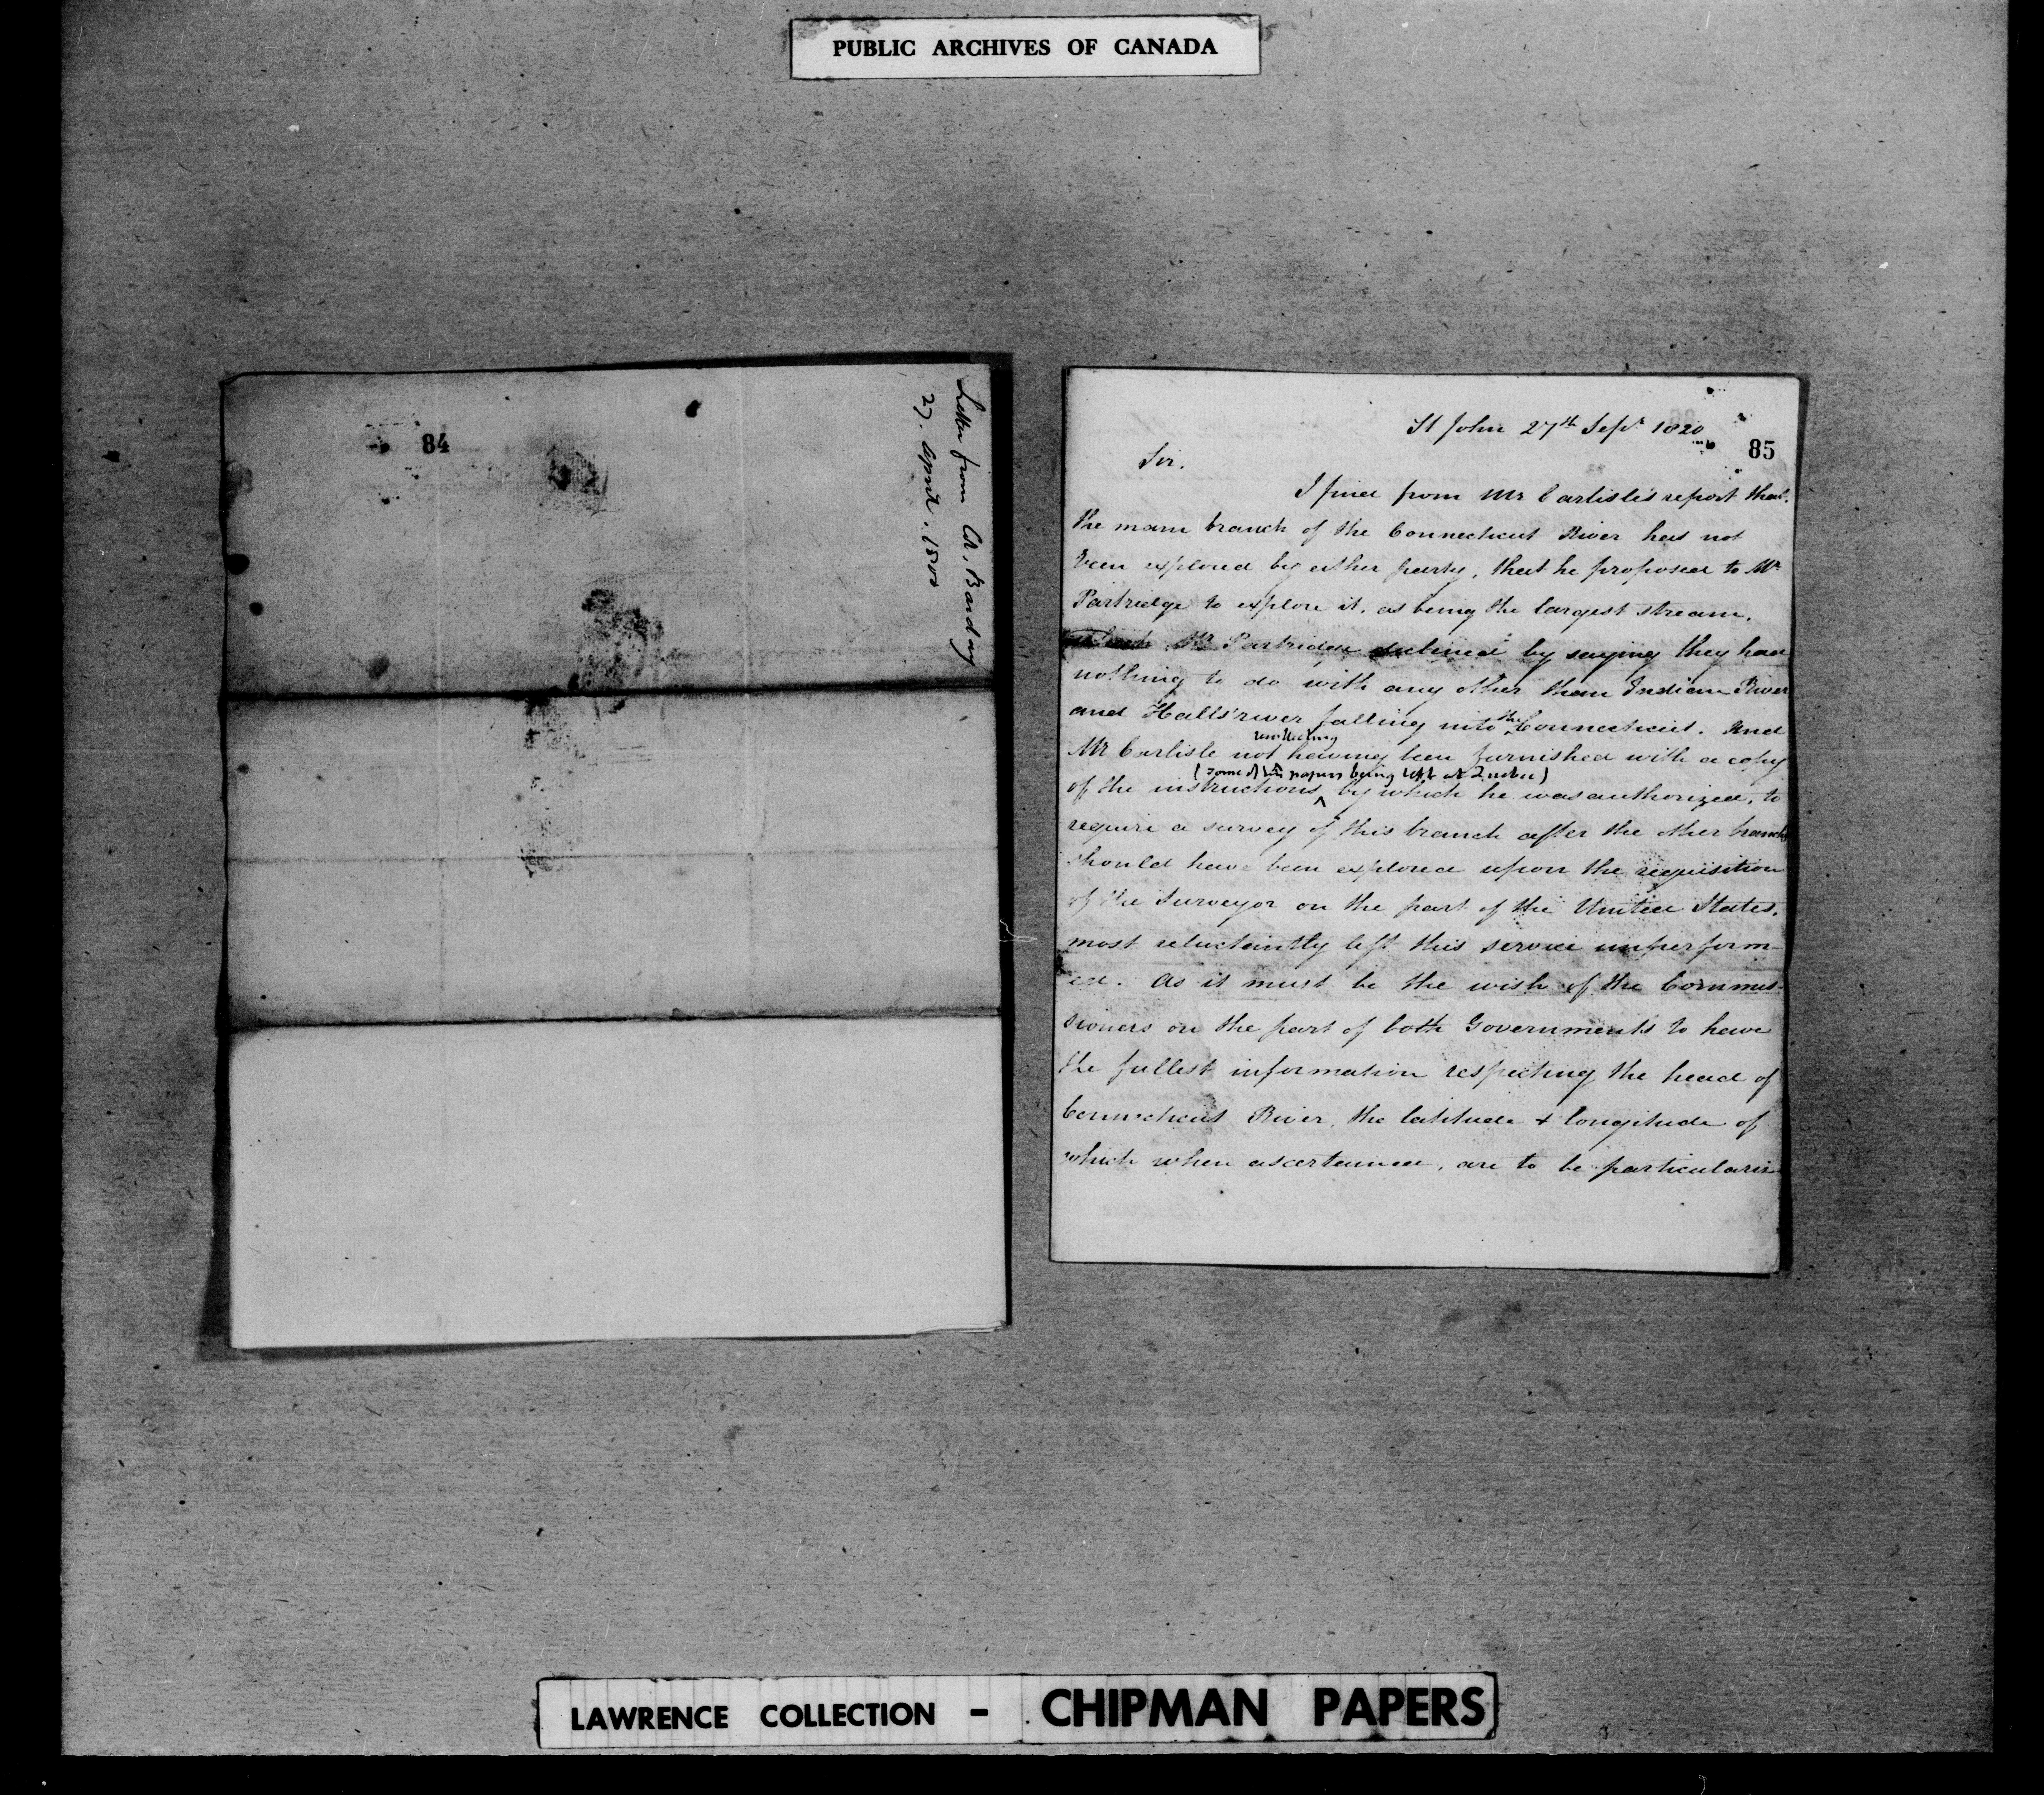 PUBLIC ARCHIVES OF CANADA
84
Letter from Col. Barclay
27. April. 1800
85
St John 27th Sepr 1820
Sir.
I find from Mr Carlisle's report that.
the main branch of the Connecticut River has not
been explored by either party, that he proposed to Mr
Partridge to explore it, as being the largest stream.
Mr Partridge declined by saying they had
nothing to do with any other than Indian River
and Halls river falling into the Connecticut. And
Mr Carlisle not recollecting having been furnished with a copy
(some of his papers being left at Quebec)
of the instructions by which he was authorized, to
require a survey of this branch after the other branches
should have been explored upon the requisition
of the Surveyor on the part of the United States.
most reluctantly left this service unperform
ed. As it must be the wish of the Commis
sioners on the part of both Governments to have
the fullest information respecting the head of
Connecticut River, the latitude & longitude of
which when ascertained, are to be particulariz
LAWRENCE COLLECTION - CHIPMAN PAPERS